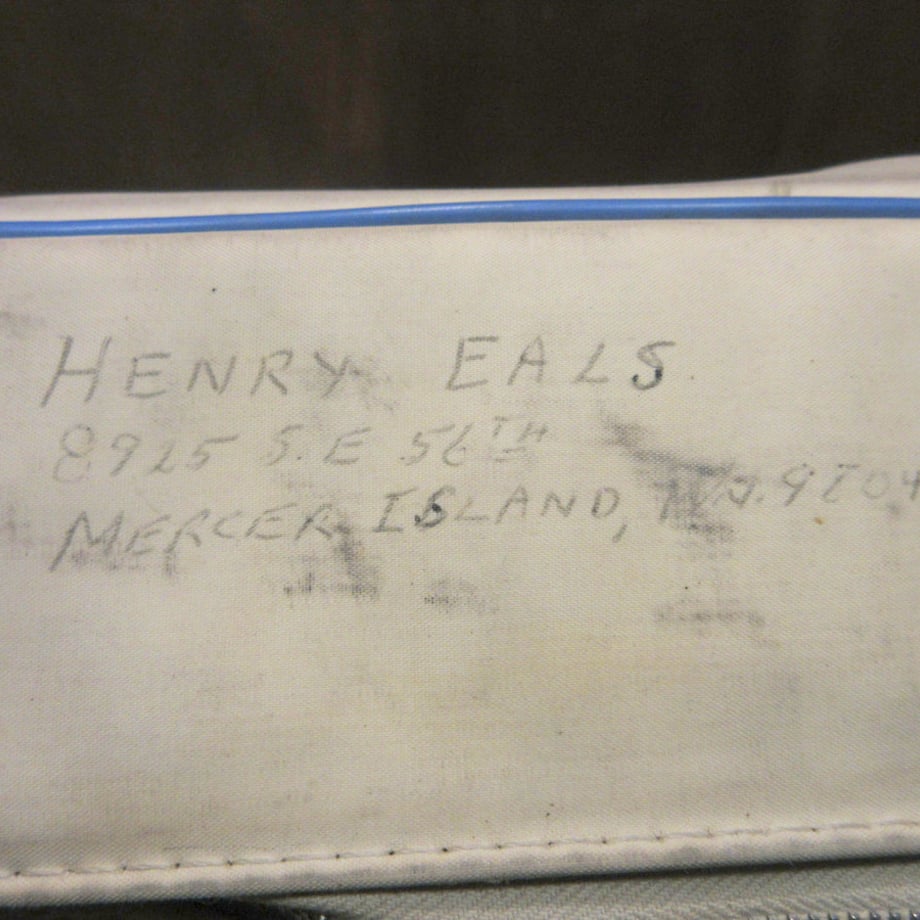 HENRY EALS
8925 S.E 56TH
MERCER ISLAND,